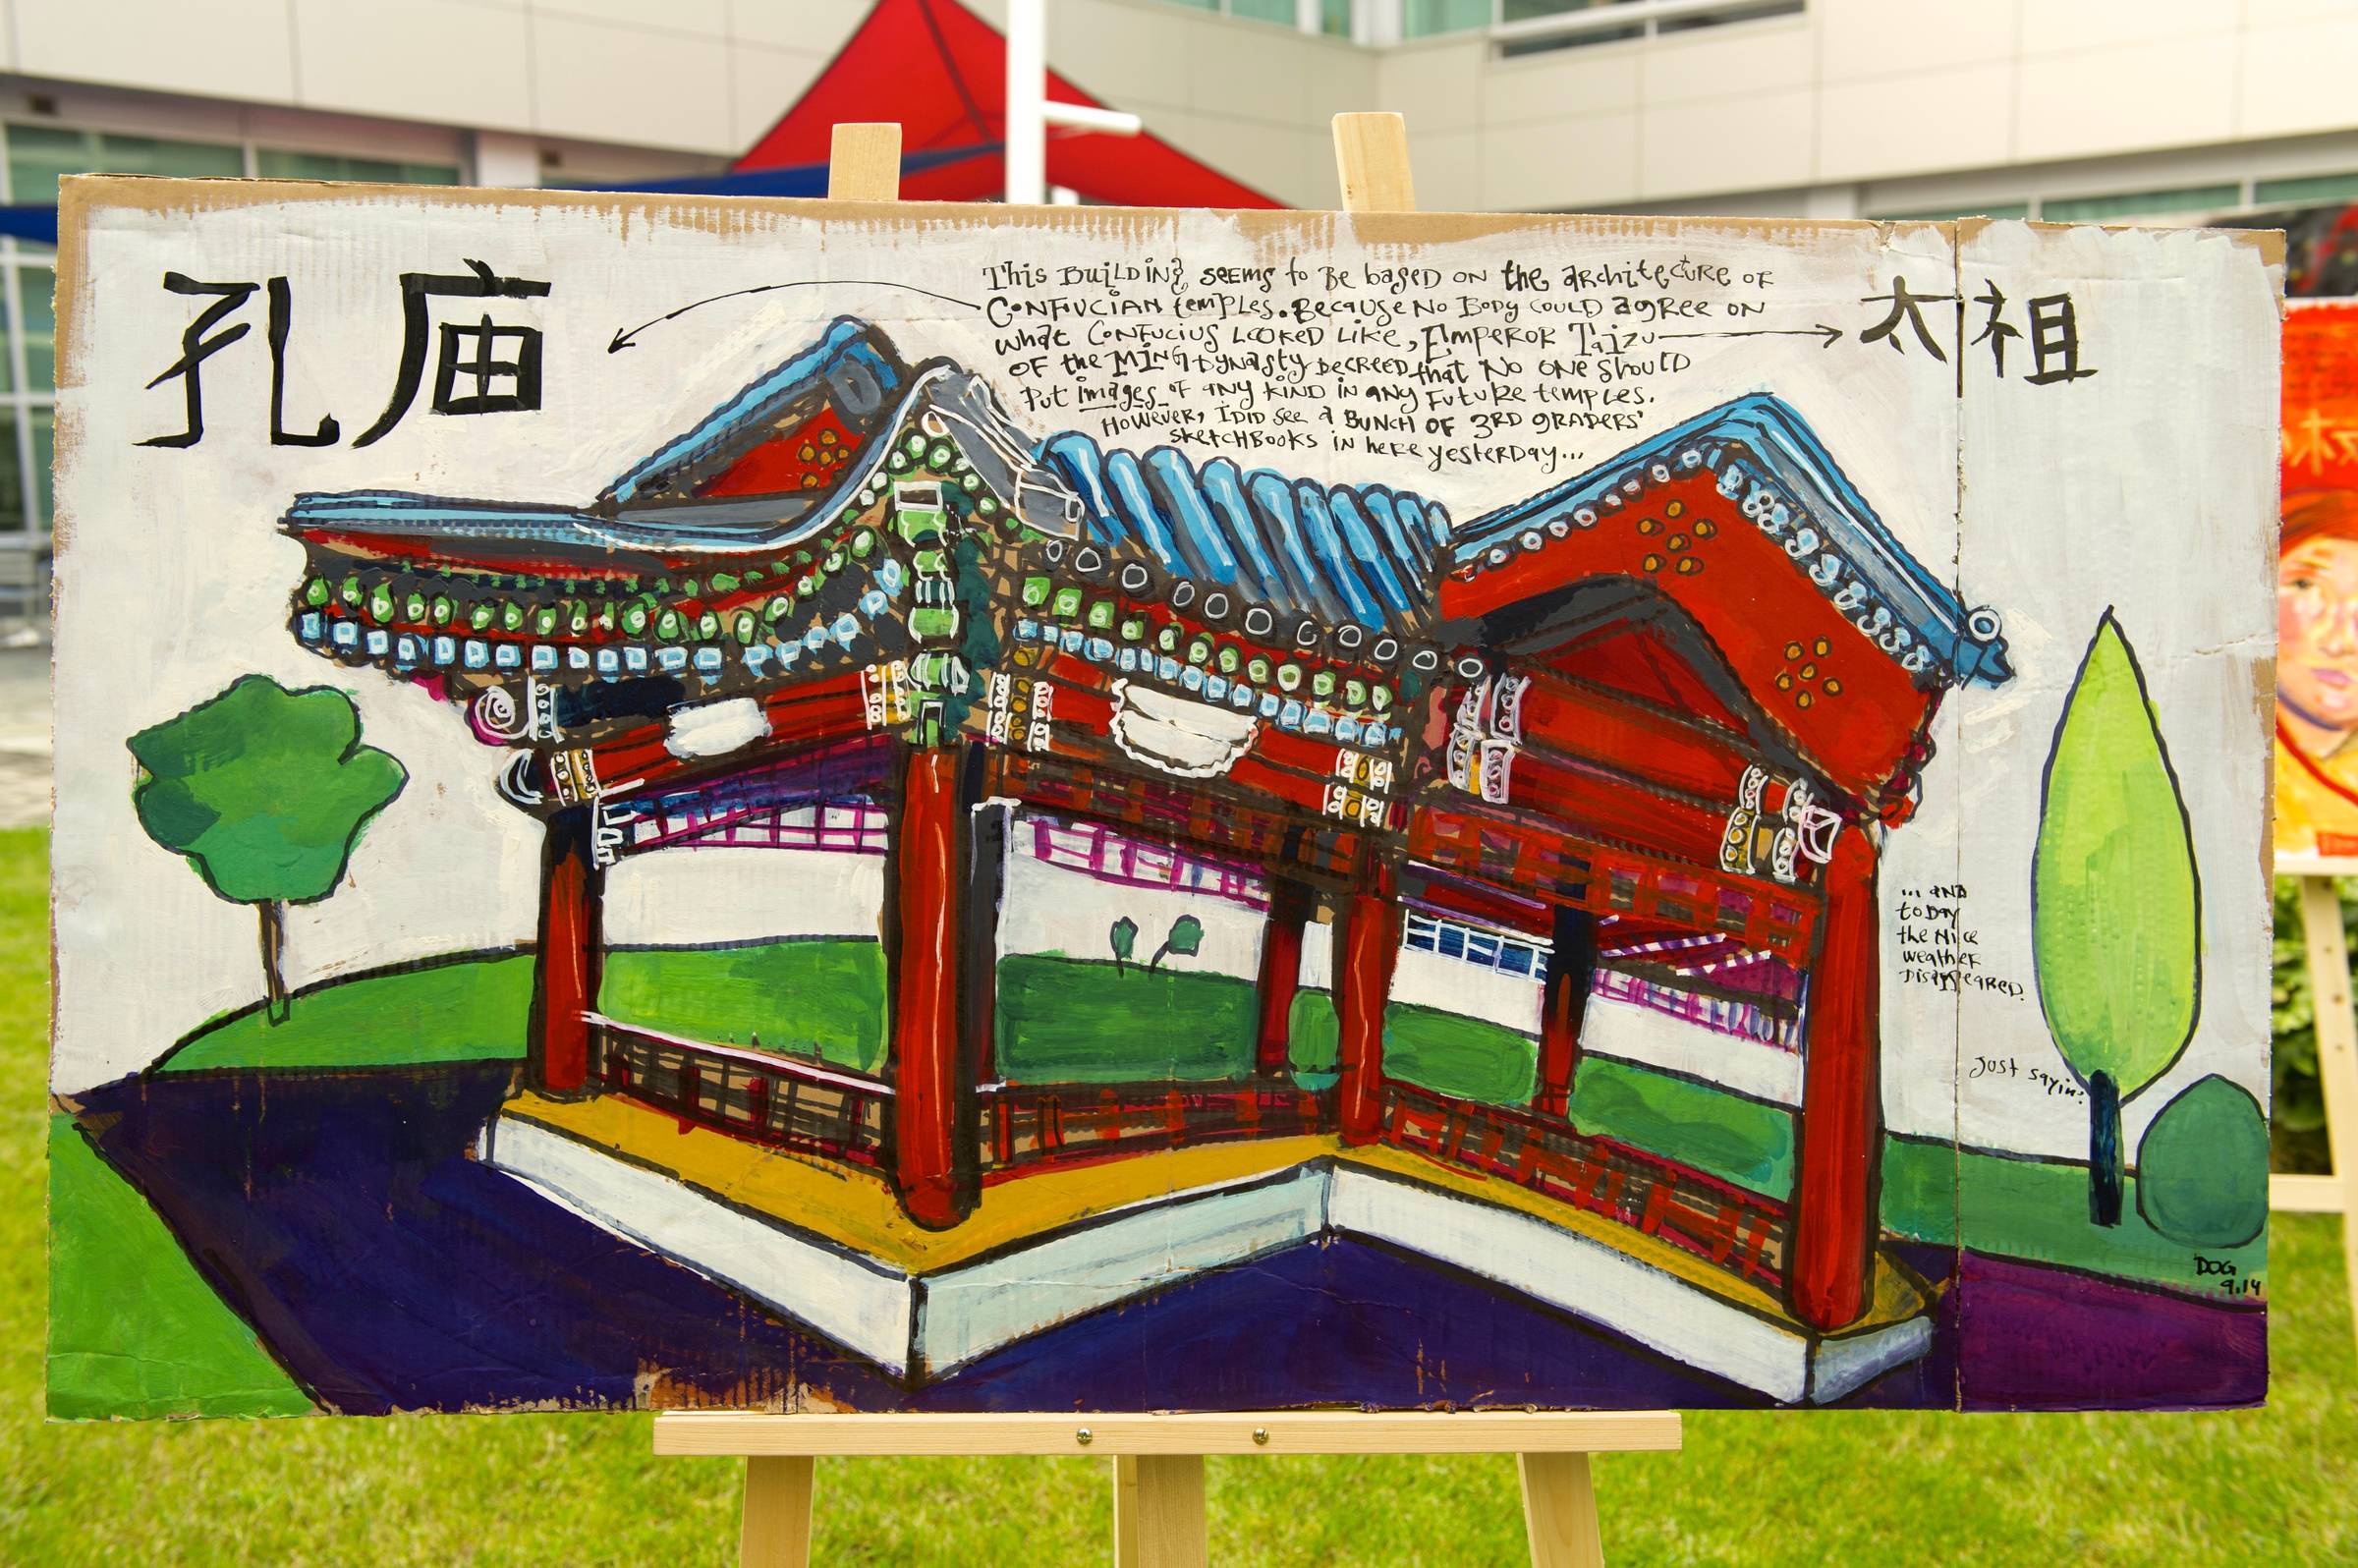 孔庙
This Building seems to be based on the architecture of
Confucian temples. Because no body could agree on
what Confucius looked like, Emperor Taizu
of the Ming dynasty decreed that no one should
put images of any kind in any future temples.
However, I did see a bunch of 3rd graders'
sketchbooks in here yesterday...
太祖
... and
today
the nice
weather
disappeared.
Just sayin'
DOG
9.14